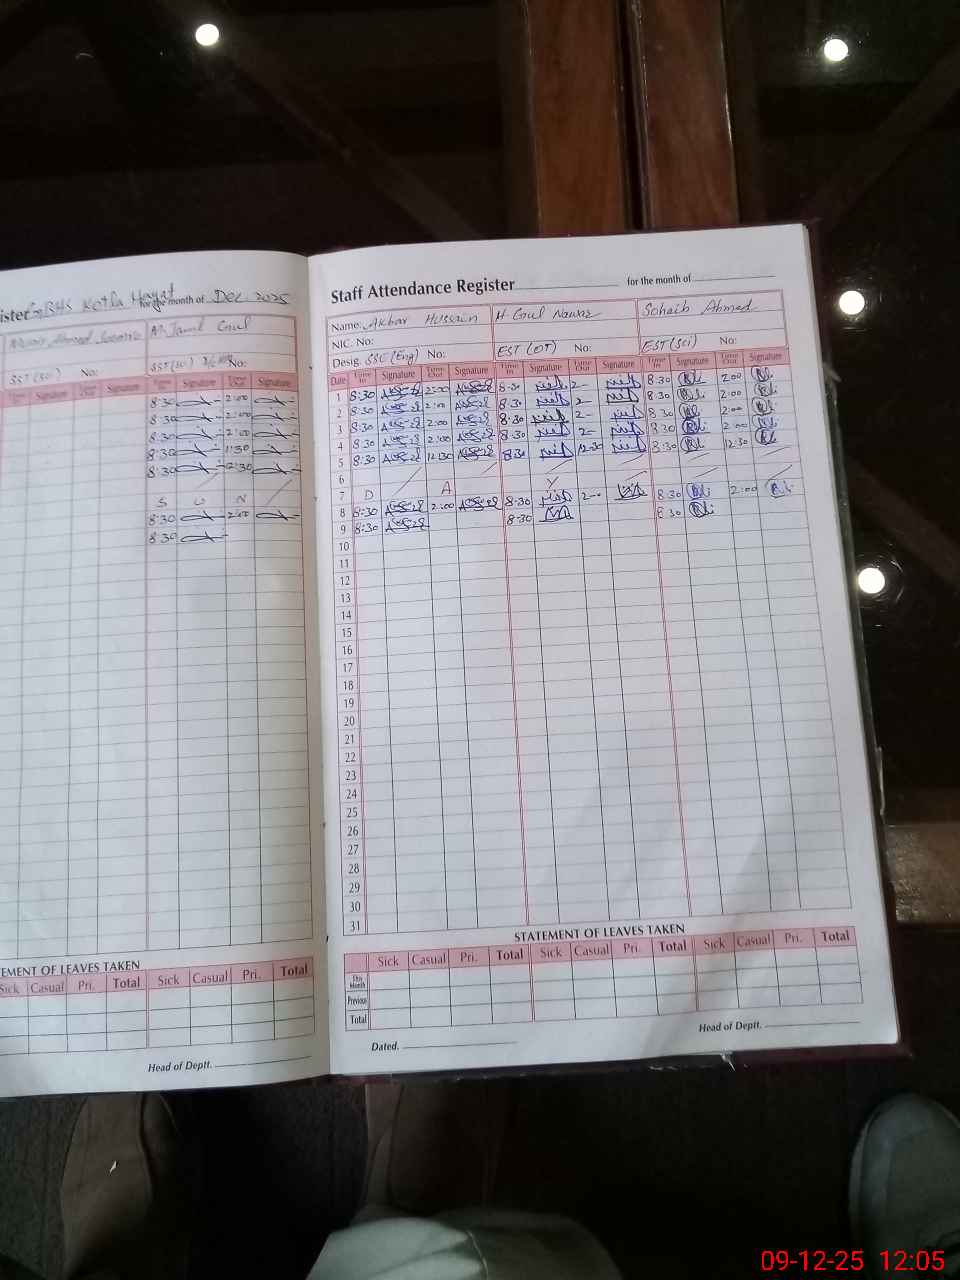 ister GBHS Kotla Hayat for the month of Dec 2025
M. Jamil Gul
SST(SCI) No: SST(SCI) No:
Time In Signature Time Out Signature Time In Signature Time Out Signature
8:30 2:00
8:30 2:00
8:30 2:00
8:30 1:30
8:30 12:30
S U N
8:30 2:00
8:30
EMENT OF LEAVES TAKEN
Sick Casual Pri. Total Sick Casual Pri. Total
Head of Deptt.
Staff Attendance Register for the month of
Name: Akbar Hussain H Gul Nawaz Sohaib Ahmed
NIC. No:
Desig. SSE (Eng) No: EST (OT) No: EST (Sci) No:
Date Time In Signature Time Out Signature Time In Signature Time Out Signature Time In Signature Time Out Signature
1 8:30 2:00 8:30 2- 8:30 2:00
2 8:30 2:00 8:30 2- 8:30 2:00
3 8:30 2:00 8:30 2- 8:30 2:00
4 8:30 2:00 8:30 2- 8:30 2:00
5 8:30 12:30 8:30 12:30 8:30 12:30
6
7 D A Y
8 8:30 2:00 8:30 2- 8:30 2:00
9 8:30 8:30 8:30
10
11
12
13
14
15
16
17
18
19
20
21
22
23
24
25
26
27
28
29
30
31
STATEMENT OF LEAVES TAKEN
Sick Casual Pri. Total Sick Casual Pri. Total Sick Casual Pri. Total
This Month
Previous
Total
Dated. Head of Deptt.
09-12-25 12:05